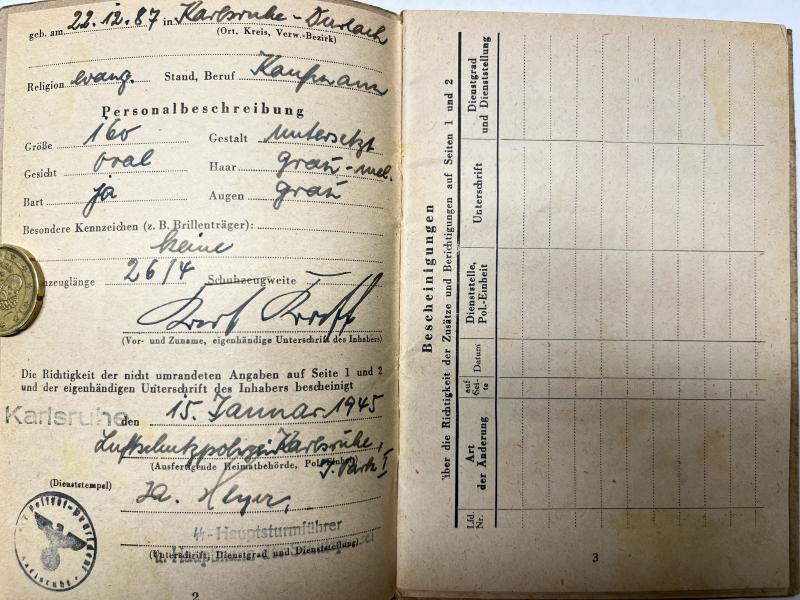 geb. am 22.12.87 in Karlsruhe-Durlach
(Ort, Kreis, Verw.-Bezirk)
Religion evang. Stand, Beruf Kaufmann
Personalbeschreibung
Größe 160 Gestalt untersetzt
Gesicht oval Haar grau-mel.
Bart ja Augen grau
Besondere Kennzeichen (z. B. Brillenträger):
keine
zeuglänge 26/4 Schuhzeugweite
(Vor- und Zuname, eigenhändige Unterschrift des Inhabers)
Die Richtigkeit der nicht umrandeten Angaben auf Seite 1 und 2
und der eigenhändigen Unterschrift des Inhabers bescheinigt
Karlsruhe den 15. Januar 1945
Luftschutzpolizei Karlsruhe,
(Ausfertigende Heimatbehörde, Pol.-Einheit)
(Dienststempel)
Hauptsturmführer
(Unterschrift, Dienstgrad und Dienststellung)
Der Polizei-Präsident
Karlsruhe
2
Bescheinigungen
über die Richtigkeit der Zusätze und Berichtigungen auf Seiten 1 und 2
Lfd. Nr.
Art der Änderung
auf Sei-te
Datum
Dienststelle, Pol.-Einheit
Unterschrift
Dienstgrad und Dienststellung
3